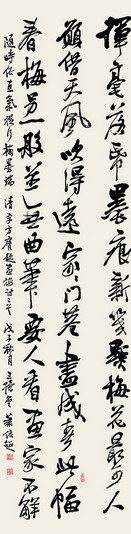 揮毫落紙墨痕新幾點梅花最可人
願借天風吹得遠家家門巷盡成春此幅
梅另一般並無曲筆要人看畫家不解
隨時俗直氣橫行翰墨端 清李方膺題畫梅詩二首 戊子秋月